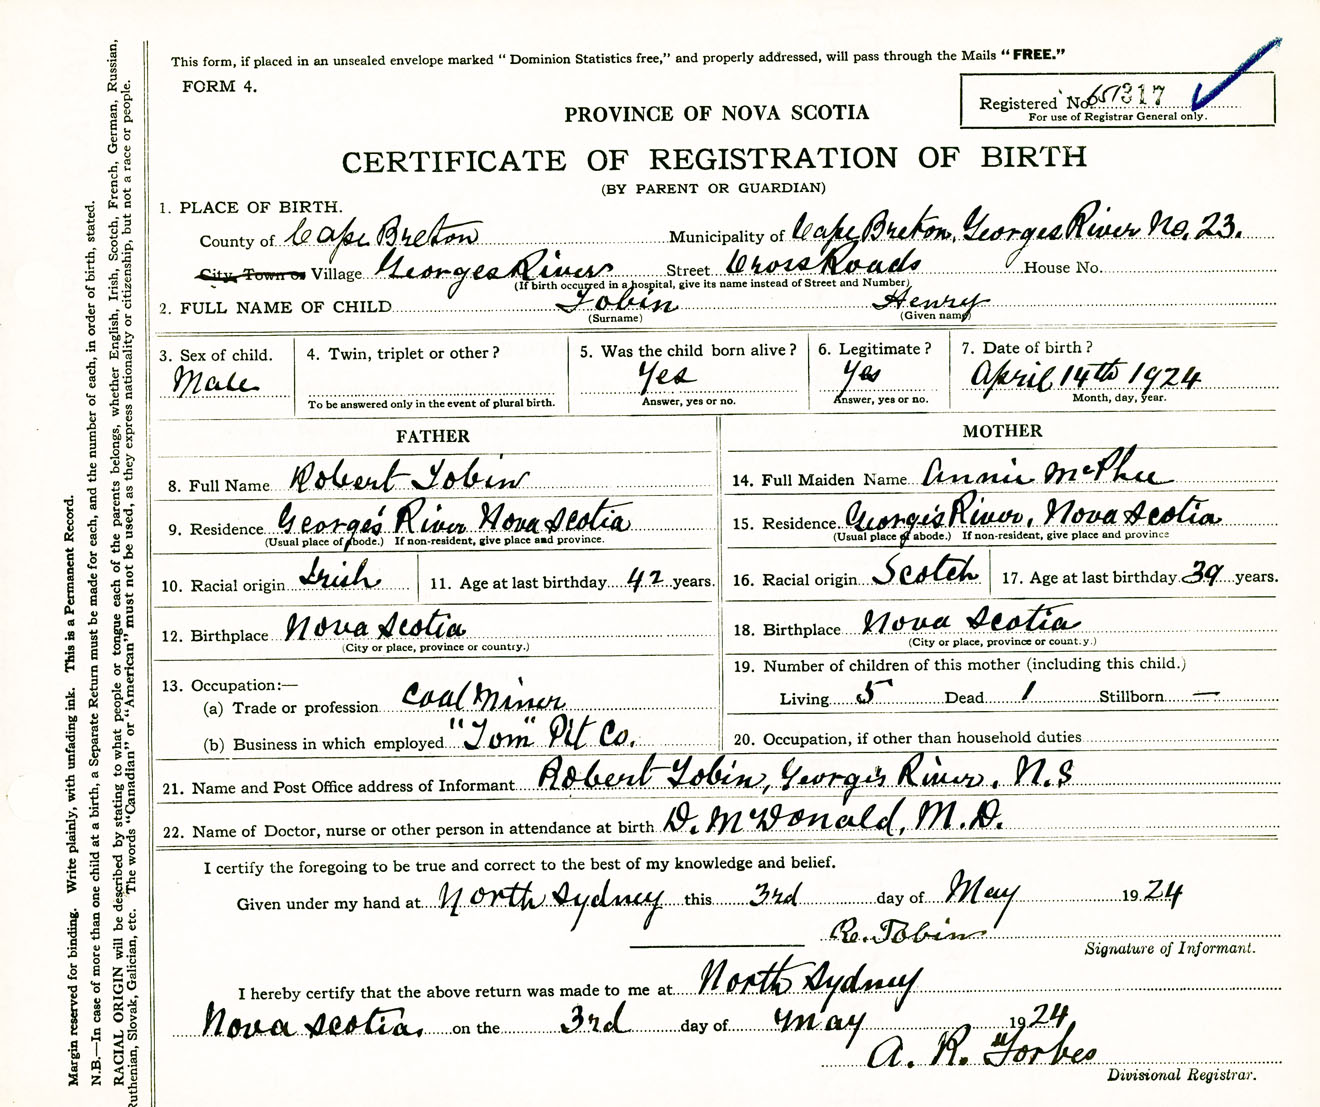 This form, if placed in an unsealed envelope marked " Dominion Statistics free," and properly addressed, will pass through the Mails " FREE."
FORM 4.
Registered No. 657317
For use of Registrar General only.
PROVINCE OF NOVA SCOTIA
CERTIFICATE OF REGISTRATION OF BIRTH
(BY PARENT OR GUARDIAN)
1. PLACE OF BIRTH.
County of Cape Breton Municipality of Cape Breton, Georges River No. 23.
City, Town or Village Georges River Street Cross Roads House No.
(If birth occurred in a hospital, give its name instead of Street and Number)
2. FULL NAME OF CHILD Tobin Henry
(Surname) (Given name)
3. Sex of child. 4. Twin, triplet or other ? 5. Was the child born alive ? 6. Legitimate ? 7. Date of birth ?
Male Yes Yes April 14th 1924
To be answered only in the event of plural birth. Answer, yes or no. Answer, yes or no. Month, day, year.
FATHER MOTHER
8. Full Name Robert Tobin 14. Full Maiden Name Annie McPhee
9. Residence George's River Nova Scotia 15. Residence George's River, Nova Scotia
(Usual place of abode.) If non-resident, give place and province. (Usual place of abode.) If non-resident, give place and province
10. Racial origin Irish 11. Age at last birthday 42 years. 16. Racial origin Scotch 17. Age at last birthday 39 years.
12. Birthplace Nova Scotia 18. Birthplace Nova Scotia
(City or place, province or country.) (City or place, province or country.)
19. Number of children of this mother (including this child.)
13. Occupation:—
(a) Trade or profession Coal Miner Living 5 Dead 1 Stillborn —
(b) Business in which employed "Tom" Pit Co. 20. Occupation, if other than household duties
21. Name and Post Office address of Informant Robert Tobin, Georges River, N.S
22. Name of Doctor, nurse or other person in attendance at birth D. McDonald, M.D.
I certify the foregoing to be true and correct to the best of my knowledge and belief.
Given under my hand at North Sydney this 3rd day of May 1924
R. Tobin
Signature of Informant.
I hereby certify that the above return was made to me at North Sydney
Nova Scotia. on the 3rd day of May 1924
A. R. Forbes
Divisional Registrar.
Margin reserved for binding. Write plainly, with unfading ink. This is a Permanent Record.
N.B.—In case of more than one child at a birth, a Separate Return must be made for each, and the number of each, in order of birth, stated.
RACIAL ORIGIN will be described by stating to what people or tongue each of the parents belongs, whether English, Irish, Scotch, French, German, Russian,
Ruthenian, Slovak, Galician, etc. The words "Canadian" or "American" must not be used, as they express nationality or citizenship, but not a race or people.